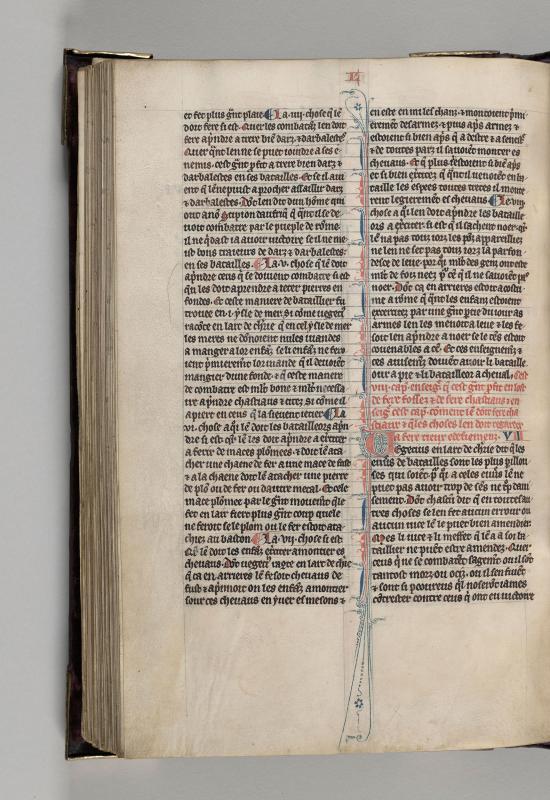 L
et fet plus gñt plaie La .iiij. chose q̃ lẽ
doit fere si est. Quer les combatãs len doit
fere apñdre a trere biẽ darz ⁊ darbalestes.
Quer qñt len ne se puet ioindre a ses e
nemis. cest gñt pfit a trere bien darz ⁊
darbalestes en ses batailles. Et se il aui
ent q̃ lẽ ne puist aprochier assaillir darz
⁊ darbalestes. Dõt len dit dun hõme qui
out anõ Scipion daufriq̃ q̃ qñt il se de
uoit combatre par le pueple de rõme.
il ne q̃doit ia auoir uictoire se il ne me
ist bons traieurs de darz ⁊ darbalestes
en ses batailles. La .v. chose q̃ lẽ doit
apñdre ceus q̃ se doiuent combatre si est
qñ les doit aprendre a ieter pierres en
fondes. Et ceste maniere de bataillier fu
trouee en .i. ysle de mer. si cõme uegeci
racõte en lart de chr̃ie q̃ en cel ysle de mer
les meres ne dõnoient nules uiandes
a mangier a lor enfãs. se li enfãs ne fero
ient p̃mieremẽt lor uiande q̃ il deuoiẽt
mangier dune fonde. ⁊ q̃ ceste maniere
de combatre est mlt bone ⁊ mlt necessa
ire apñdre chastiaus ⁊ citez. si cõme il
apiert en ceus q̃ la sieuent ieter. La
.vi. chose a q̃i lẽ doit les batailleors apñ
dre si est qñ lẽ les doit apñdre a exciter
a ferir de maces plõmees. ⁊ doit lẽ ata
chier une chaene de fer a une mace de fust
⁊ a la chaene doit lẽ atachier une pierre
de plõ ou de fer ou dautre metal. Et cele
mace plõmee par le gñt mouuemẽt q̃ le
fet en lair fiert plus gñt coup q̃ele
ne feroit se le plom ou le fer estoit ata
chiez au baston La .vij. chose si est
q̃ lẽ doit les enfãs exciter a monter es
cheuaus. Dõt uegeci racõte en lart de chr̃ie
q̃ ca en arrieres lẽ fesoit cheuaus de
fust ⁊ apñnoit on les enfãs a monter
sour ces cheuaus en yuer es mesons ⁊
en esté en mi les chans. ⁊ montoient p̃mi
eremẽt desarmez ⁊ puis apñs armez ⁊
estoient si bien apñs q̃ a destre ⁊ a senestre
⁊ de toutes pars il sauoient monter es
cheuaus. Et q̃ plus ẽ estoient si biẽ apñs
et si bien exercez q̃ qñt il uenoiẽt en ba
taille les espees toutes tretes il monto
ient legieremẽt es cheuaus La .viij.
chose a q̃i len doit apñdre les bataille
ors a exciter. si est q̃ il sachent noer. q̃r
lẽ na pas touz iorz les põs apareilliez
ne len ne set pas touz iorz la parfon
desce de leue. por q̃i mlt de gens ont este
mlt de fois neez p̃ ce q̃ il ne sauoiẽt pas
noer. Dõt ca en arrieres estoit acostu
me a rõme q̃ qñt les enfans estoient
exercitez par une gñt ptie du iour as
armes len les menoit a leue ⁊ les fe
soit len apñdre a noer se le tẽs estoit
couenables a ce. Et ces enseignemẽs ⁊
ces auisemẽs doiuẽt auoir li bataille
our a pie ⁊ li bataillour a cheual. Cest
viij. cap̃. enseig̃ q̃ cest gñt pfit en lost
de fere fossez ⁊ de fere chastiaus ⁊ en
seig̃ cest cap̃. cõment lẽ doit fere cha
stiaus ⁊ q̃les choses len doit regarder
a fere tieux edefiemens. VI
Uegecius en lart de chr̃ie dit q̃ les
euures de batailles sont les plus pillou
ses qui soiẽt. p̃ q̃i a celes euures lẽ ne
puet pas auoir trop de sẽs ne p̃ dam
sement. Dõt chastũ dit q̃ en toutes au
tres choses se len fet aucun errour ou
aucun uice lẽ le puet bien amender.
Mes li uice ⁊ li meffet q̃ lẽ a a soi ba
taillier ne puẽt estre amendez. Quer
ceus q̃ ne se combatẽt sagemẽt ou il sõt
tantost mors ou ocis. ou il sen fuiẽt
⁊ sont si peoureus q̃ il noserõt iames
cõtrester contre ceus q̃ ont eu uictoire